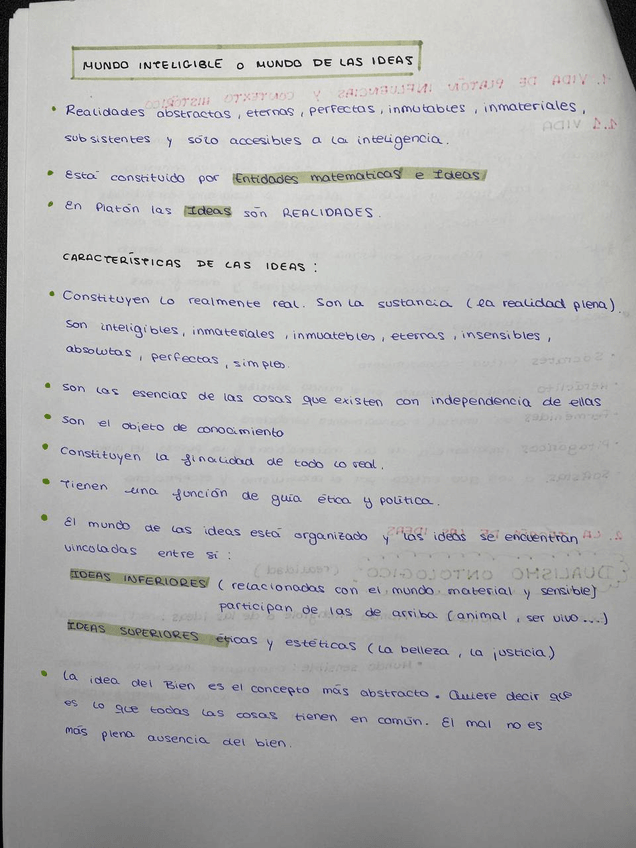 MUNDO INTELIGIBLE O MUNDO DE LAS IDEAS
• Realidades abstractas, eternas, perfectas, inmutables, inmateriales,
subsistentes y sólo accesibles a la inteligencia.
• Está constituido por Entidades matematicas e Ideas
• En Platón las Ideas són REALIDADES.
CARACTERÍSTICAS DE LAS IDEAS:
• Constituyen lo realmente real. Son la sustancia (la realidad plena).
Son inteligibles, inmateriales, inmuatebles, eternas, insensibles,
absolutas, perfectas, simples.
• Son las esencias de las cosas que existen con independencia de ellas
• Son el objeto de conocimiento
• Constituyen la finalidad de todo lo real.
• Tienen una función de guía ética y política.
• El mundo de las ideas está organizado y las ideas se encuentran
vincoladas entre sí:
IDEAS INFERIORES (relacionadas con el mundo material y sensible)
participan de las de arriba (animal, ser vivo....)
IDEAS SUPERIORES éticas y estéticas (la belleza, la justicia)
• La idea del Bien es el concepto más abstracto. Quiere decir que
es lo que todas las cosas tienen en común. El mal no es
más plena ausencia del bien.